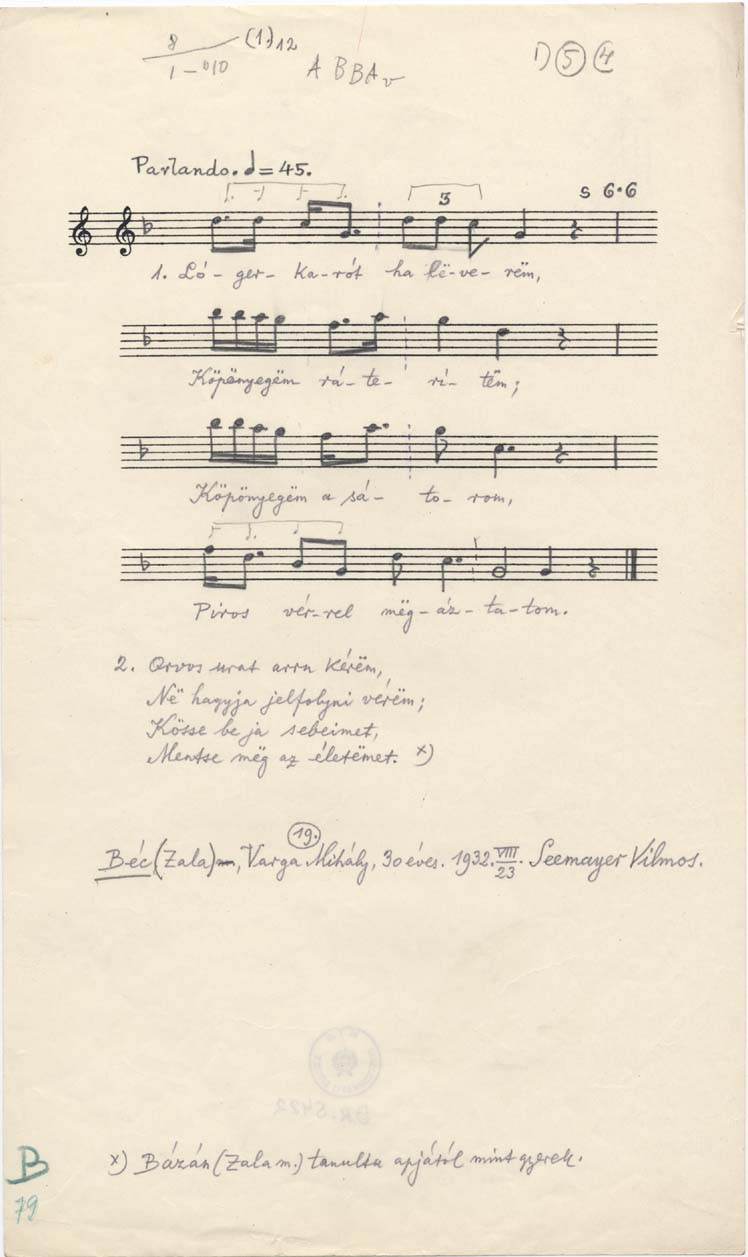 8 (1.)12
1 – b10
A B B Av
1) 5 4
Parlando. ♩= 45.
3
s 6·6
1. Ló- ger- ka-rót ha lë-ve- rëm,
Köpönyegëm rá- te- ri- tëm;
Köpönyegëm a sá- to- rom,
Piros vér-rel mëg-áz-ta-tom.
2. Orvos urat arra kérëm,
Në hagyja jelfolyni vérëm;
Kösse be ja sebeimet,
Mentse mëg az életëmet. x)
19.
Béc (Zala), Varga Mihály, 30 éves. 1932.VIII/23. Seemayer Vilmos.
x) Bázán (Zala m.) tanulta apjától mint gyerek.
B
79